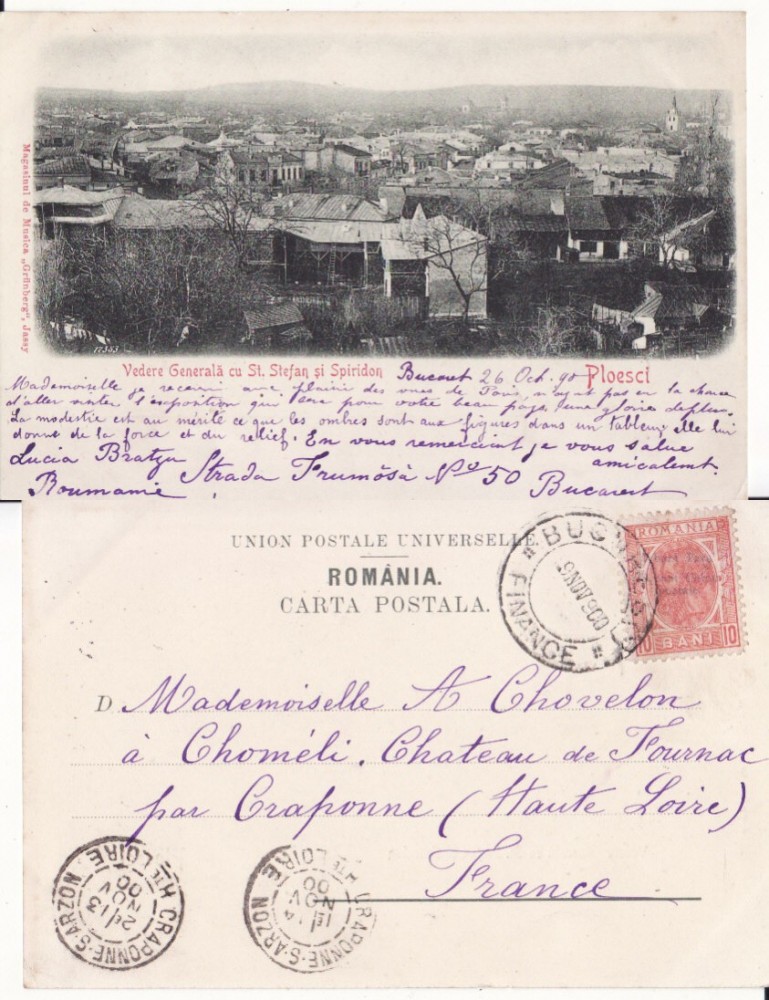 Magasinul de Musica „Grünberg“, Jassy
17383
Vedere Generală cu St. Stefan și Spiridon
Ploesci
Bucarest 26 Oct. 90
Mademoiselle je avec plaisir des vues de Paris, n'ayant pas eu la chance
d'aller visiter l'exposition qui sera pour votre beau pays une gloire de plus.
La modestie est au mérite ce que les ombres sont aux figures dans un tableau; elle lui
donne de la force et du relief. En vous remerciant je vous salue
amicalemt.
Lucia Bratzu Strada Frumósă No 50
Roumanie Bucarest
UNION POSTALE UNIVERSELLE
ROMÂNIA.
CARTA POSTALA.
FINANCE
9 NOV 900
ROMANIA
10 BANI 10
D Mademoiselle A Chovelon
à Choméli. Chateau de Fournac
par Craponne (Haute Loire)
France
CRAPONNE-S-ARZON
HTE LOIRE
13
NOV
00
CRAPONNE-S-ARZON
HTE LOIRE
NOV
00